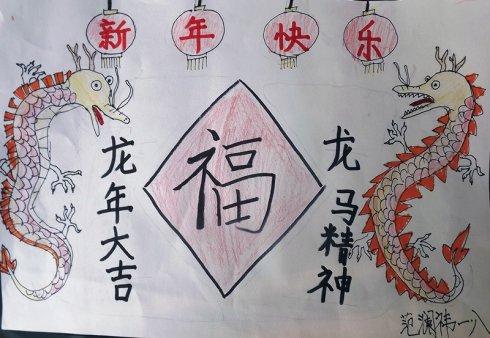 新年快乐
龙年大吉
福
龙马精神
范澜祎一八